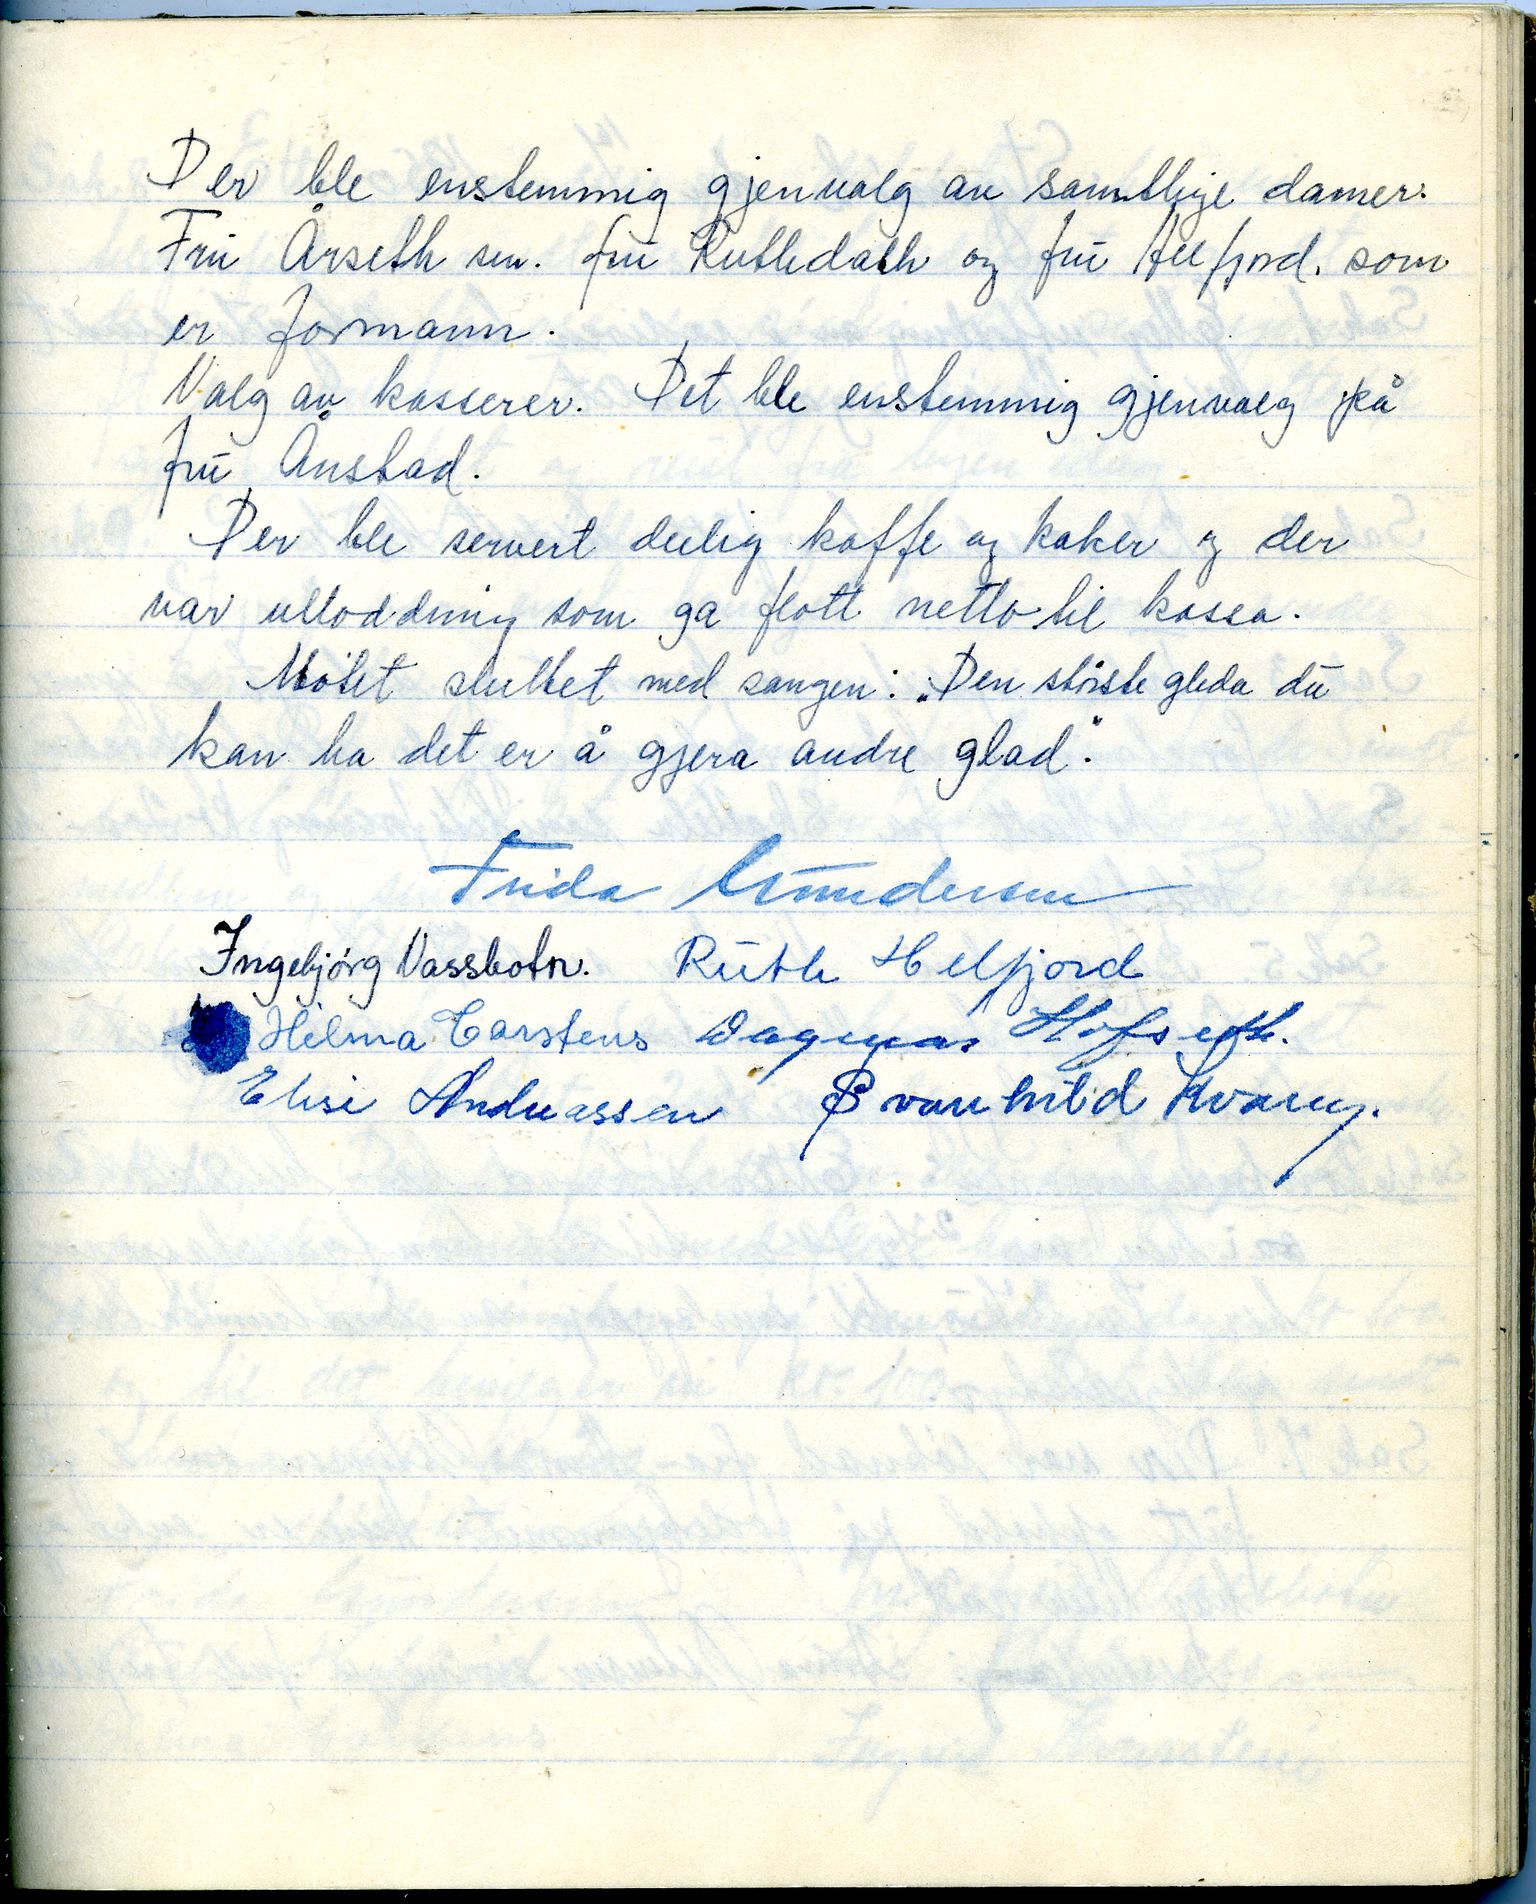 Der ble enstemmig gjenvalg av samtlige damer.
Fru Årseth sen. fru Ruthdahl og fru Helfjord. som
er formann.
Valg av kasserer. Det ble enstemmig gjenvalg på
fru Ånstad.
Der ble servert deilig kaffe og kaker og der
var utloddning som ga flott netto til kassa.
Møtet sluttet med sangen: „Den største gleda du
kan ha det er å gjera andre glad".
Frida Gundersen
Ingebjørg Vassbotn. Ruth Helfjord
Hilma Carstens Dagmar Hofseth.
Elise Andreassen Svanhild Kvam.